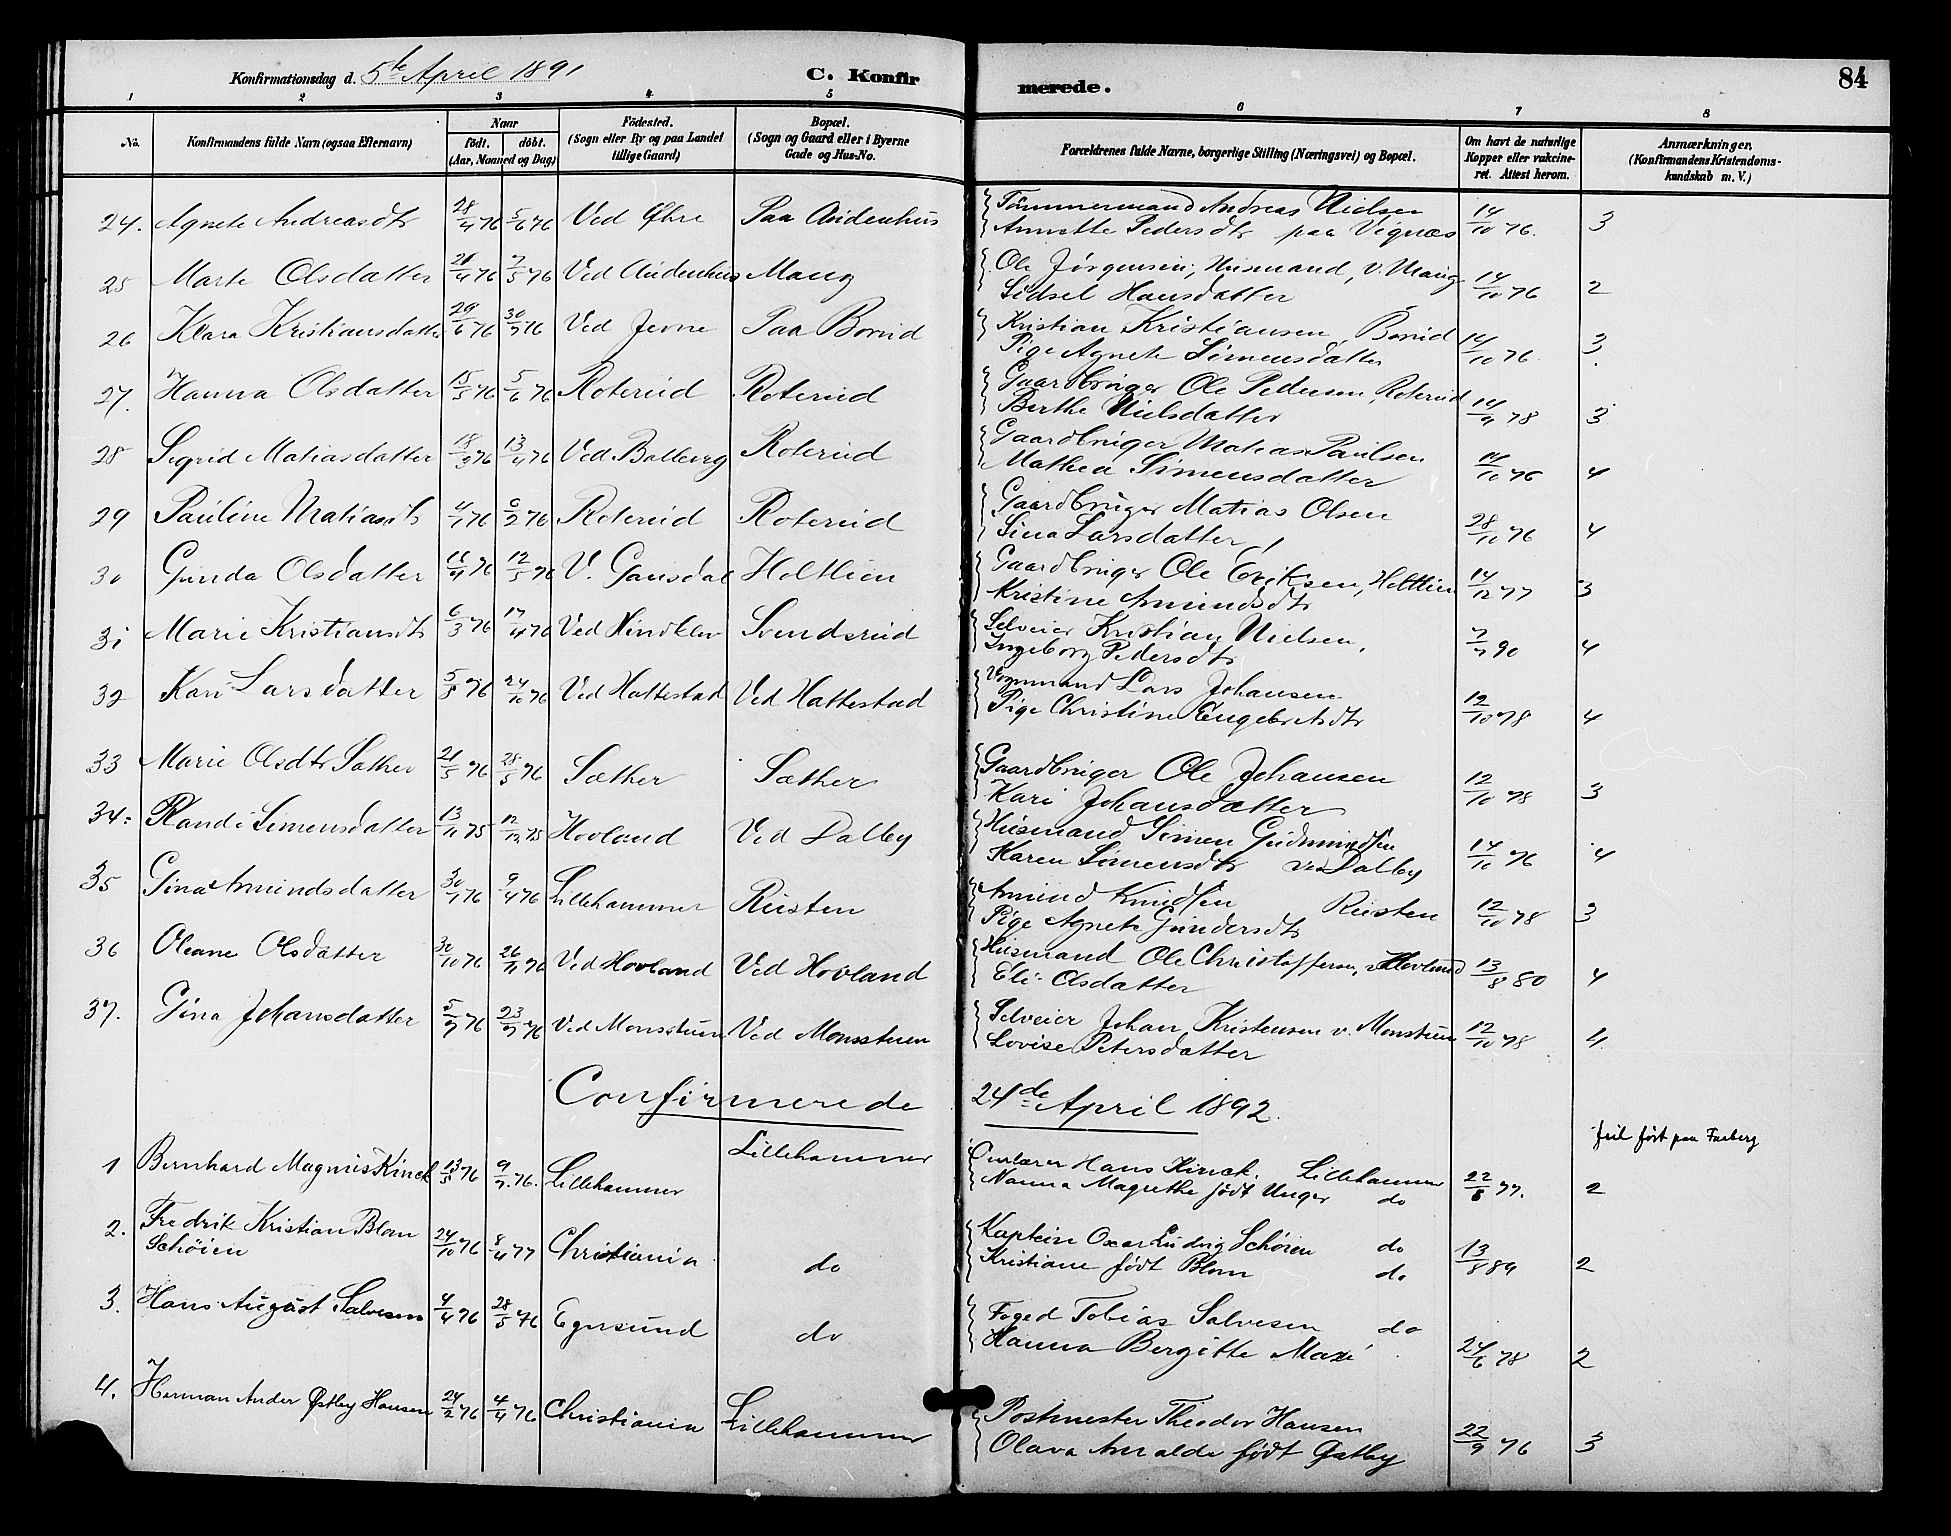 Konfirmationsdag d. 5te April 1891 C. Konfirmerede. 84
1 2 3 4 5 6 7 8
No. Konfirmandens fulde Navn (ogsaa Efternavn) Naar födt. döbt. (Aar, Maaned og Dag) Födested. (Sogn eller By og paa Landet tillige Gaard) Bopæl. (Sogn og Gaard eller i Byerne Gade og Hus-No. Forældrenes fulde Navne, borgerlige Stilling (Næringsvei) og Bopæl. Om havt de naturlige Kopper eller vakcineret. Attest herom. Anmærkninger. (Konfirmandens Kristendomskundskab m. V.)
24. Agnete Andreasdtr 28/4 76 5/6 76 Ved Øhre Paa Audenhus Tømmermand Andreas Nielsen 14/10 76. 3
Annette Pedersdtr paa Vignæs
25 Marte Olsdatter 21/4 76 7/5 76 Ved Audenhus Maug Ole Jørgensen, Husmand, v. Maug 14/10 76 2
Sidsel Hansdatter
26 Klara Kristiansdatter 29/6 76 30/7 76 Ved Jevne Paa Borud Kristian Kristiansen, Borud 14/10 76 3.
Pige Agnete Simensdatter
27. Hanna Olsdatter 15/5 76 5/6 76 Roterud Roterud Gaardbruger Ole Pedersen, Roterud 14/9 78 3
Berthe Nielsdatter
28 Sigrid Matiasdatter 18/3 76 13/4 76 Ved Balberg Roterud Gaardbruger Matias Paulsen 14/10 76 4
Mathea Simensdatter
29 Pauline Matiasdtr 4/1 76 6/2 76 Roterud Roterud Gaardbruger Matias Olsen 28/10 76 4
Sina Larsdatter
30 Gunda Olsdatter 16/4 76 12/5 76 V. Gausdal Holtlien Gaardbruger Ole Eriksen, Holtlien 14/12 77 3
Kristine Amundsdtr
31 Marie Kristiansdtr 6/3 76 17/4 76 Ved Hindklev Svendsrud Selveier Kristian Nielsen, 7/7 90 4
Ingeborg Pedersdtr
32 Kari Larsdatter 5/8 76 24/10 76 Ved Hattestad Ved Hattestad Lars Johansen 12/10 78 4
Pige Christine Engebretsdtr
33 Marie Olsdtr Sather 21/5 76 28/5 76 Sæther Sæther Gaardbruger Ole Johansen 12/10 78 3
Kari Johansdatter
34. Randi Simensdatter 13/11 75 12/12 75 Hovland Ved Dalby Husmand Simen Gudmundsen 14/10 76 4
Karen Simensdtr ved Dalby
35 Gina Amundsdatter 30/1 76 9/4 76 Lillehammer Rusten Amund Knudsen Rusten 12/10 78 3
Pige Agnete Gundersdtr
36 Oleane Olsdatter 30/10 76 26/11 76 Ved Hovland Ved Hovland Husmand Ole Christoffersen, v. Hovland 13/8 80 4
Eli Olsdatter
37. Gina Johansdatter 5/7 76 23/7 76 Ved Monsstuen Ved Monsstuen Selveier Johan Kristensen v. Monstuen 12/10 78 4.
Lovise Petersdatter
Confirmerede 24de April 1892.
feil ført paa Faaberg
1 Bernhard Magnus Kinck 13/5 76 9/7 76. Lillehammer Lillehammer Hans Kinck. Lillehammer 22/8 77. 2
Nanna Magrethe født Unger do
2. Fredrik Kristian Blom Schöien 24/10 76 8/4 77 Christiania do Kaptein Oscar Ludvig Schöien do 13/8 89 2
Kristiane født Blom do
3. Hans August Salvesen 4/4 76 28/5 76 Egersund do Foged Tobias Salvesen do 24/6 78 2
Hanna Bergitte Maxe
4. Herman Ander Østby Hansen 24/2 76 4/4 76 Christiania Lillehammer Postmester Theodor Hansen 22/9 76 3
Olava Amalde født Østby